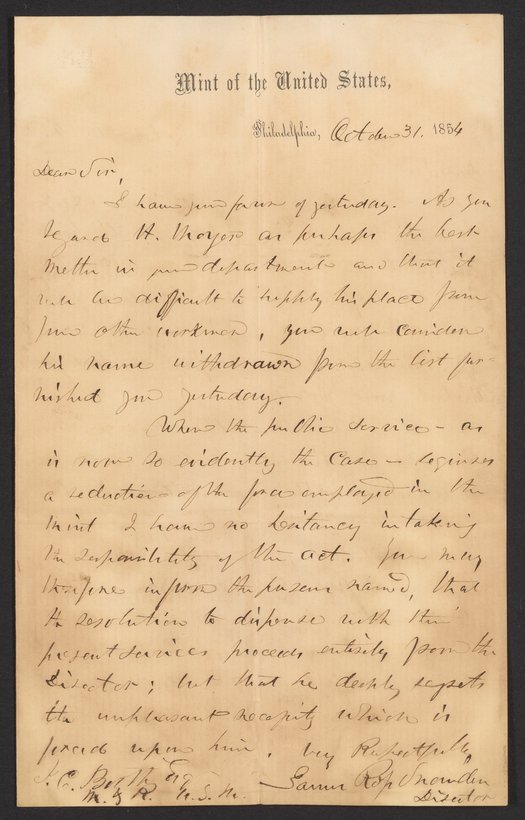 Mint of the United States,
Philadelphia, October 31. 1854
Dear Sir,
I have your favor of yesterday. As you
regard H. as perhaps the best
melter in your department and that it
will be difficult to supply his place from
your other workmen, you will consider
his name withdrawn from the list fur-
nished you yesterday.
When the public service – as
is now so evidently the case – requires
a reduction of the force employed in the
Mint I have no hesitancy in taking
the responsibility of the act. You may
therefore inform the persons named, that
the resolution to dispense with their
present services proceeds entirely from the
Director; but that he deeply regrets
the unpleasant necessity which is
forced upon him. Very Respectfully,
J. C. Booth Esq James Ross Snowden
M. & R. U.S.M. Director